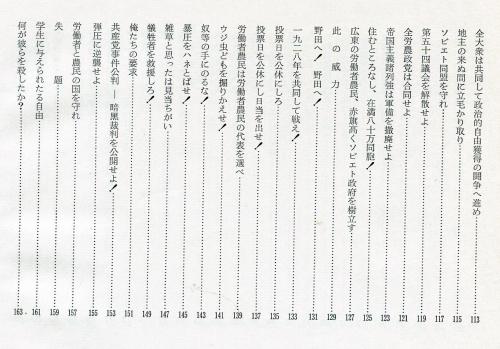 全大衆は共同して政治的自由獲得の闘争へ進め……113
地主の来ぬ間に立毛かり取り……115
ソビエト同盟を守れ……117
第五十四議会を解散せよ……119
全労農政党は合同せよ……121
帝国主義諸列強は軍備を撤廃せよ……123
住むところなし、在満八十万同胞!……125
広東の労働者農民、赤旗高くソビエト政府を樹立す……127
此の威力……129
野田へ! 野田へ!……131
一九二八年を共同して戦え!……133
投票日を公休にしろ……135
投票日を公休にし日当を出せ!……137
労働者農民は労働者農民の代表を選べ……139
ウジ虫どもを掘りかえせ!……141
奴等の手にのるな!……143
暴圧をハネとばせ!……145
雑草と思ったは見当ちがい……147
犠牲者を救援しろ!……149
俺たちの要求……151
共産党事件公判──暗黒裁判を公開せよ!……153
弾圧に逆襲せよ……155
労働者と農民の国を守れ……157
失題……159
学生に与えられたる自由……161
何が彼らを殺したか?……163